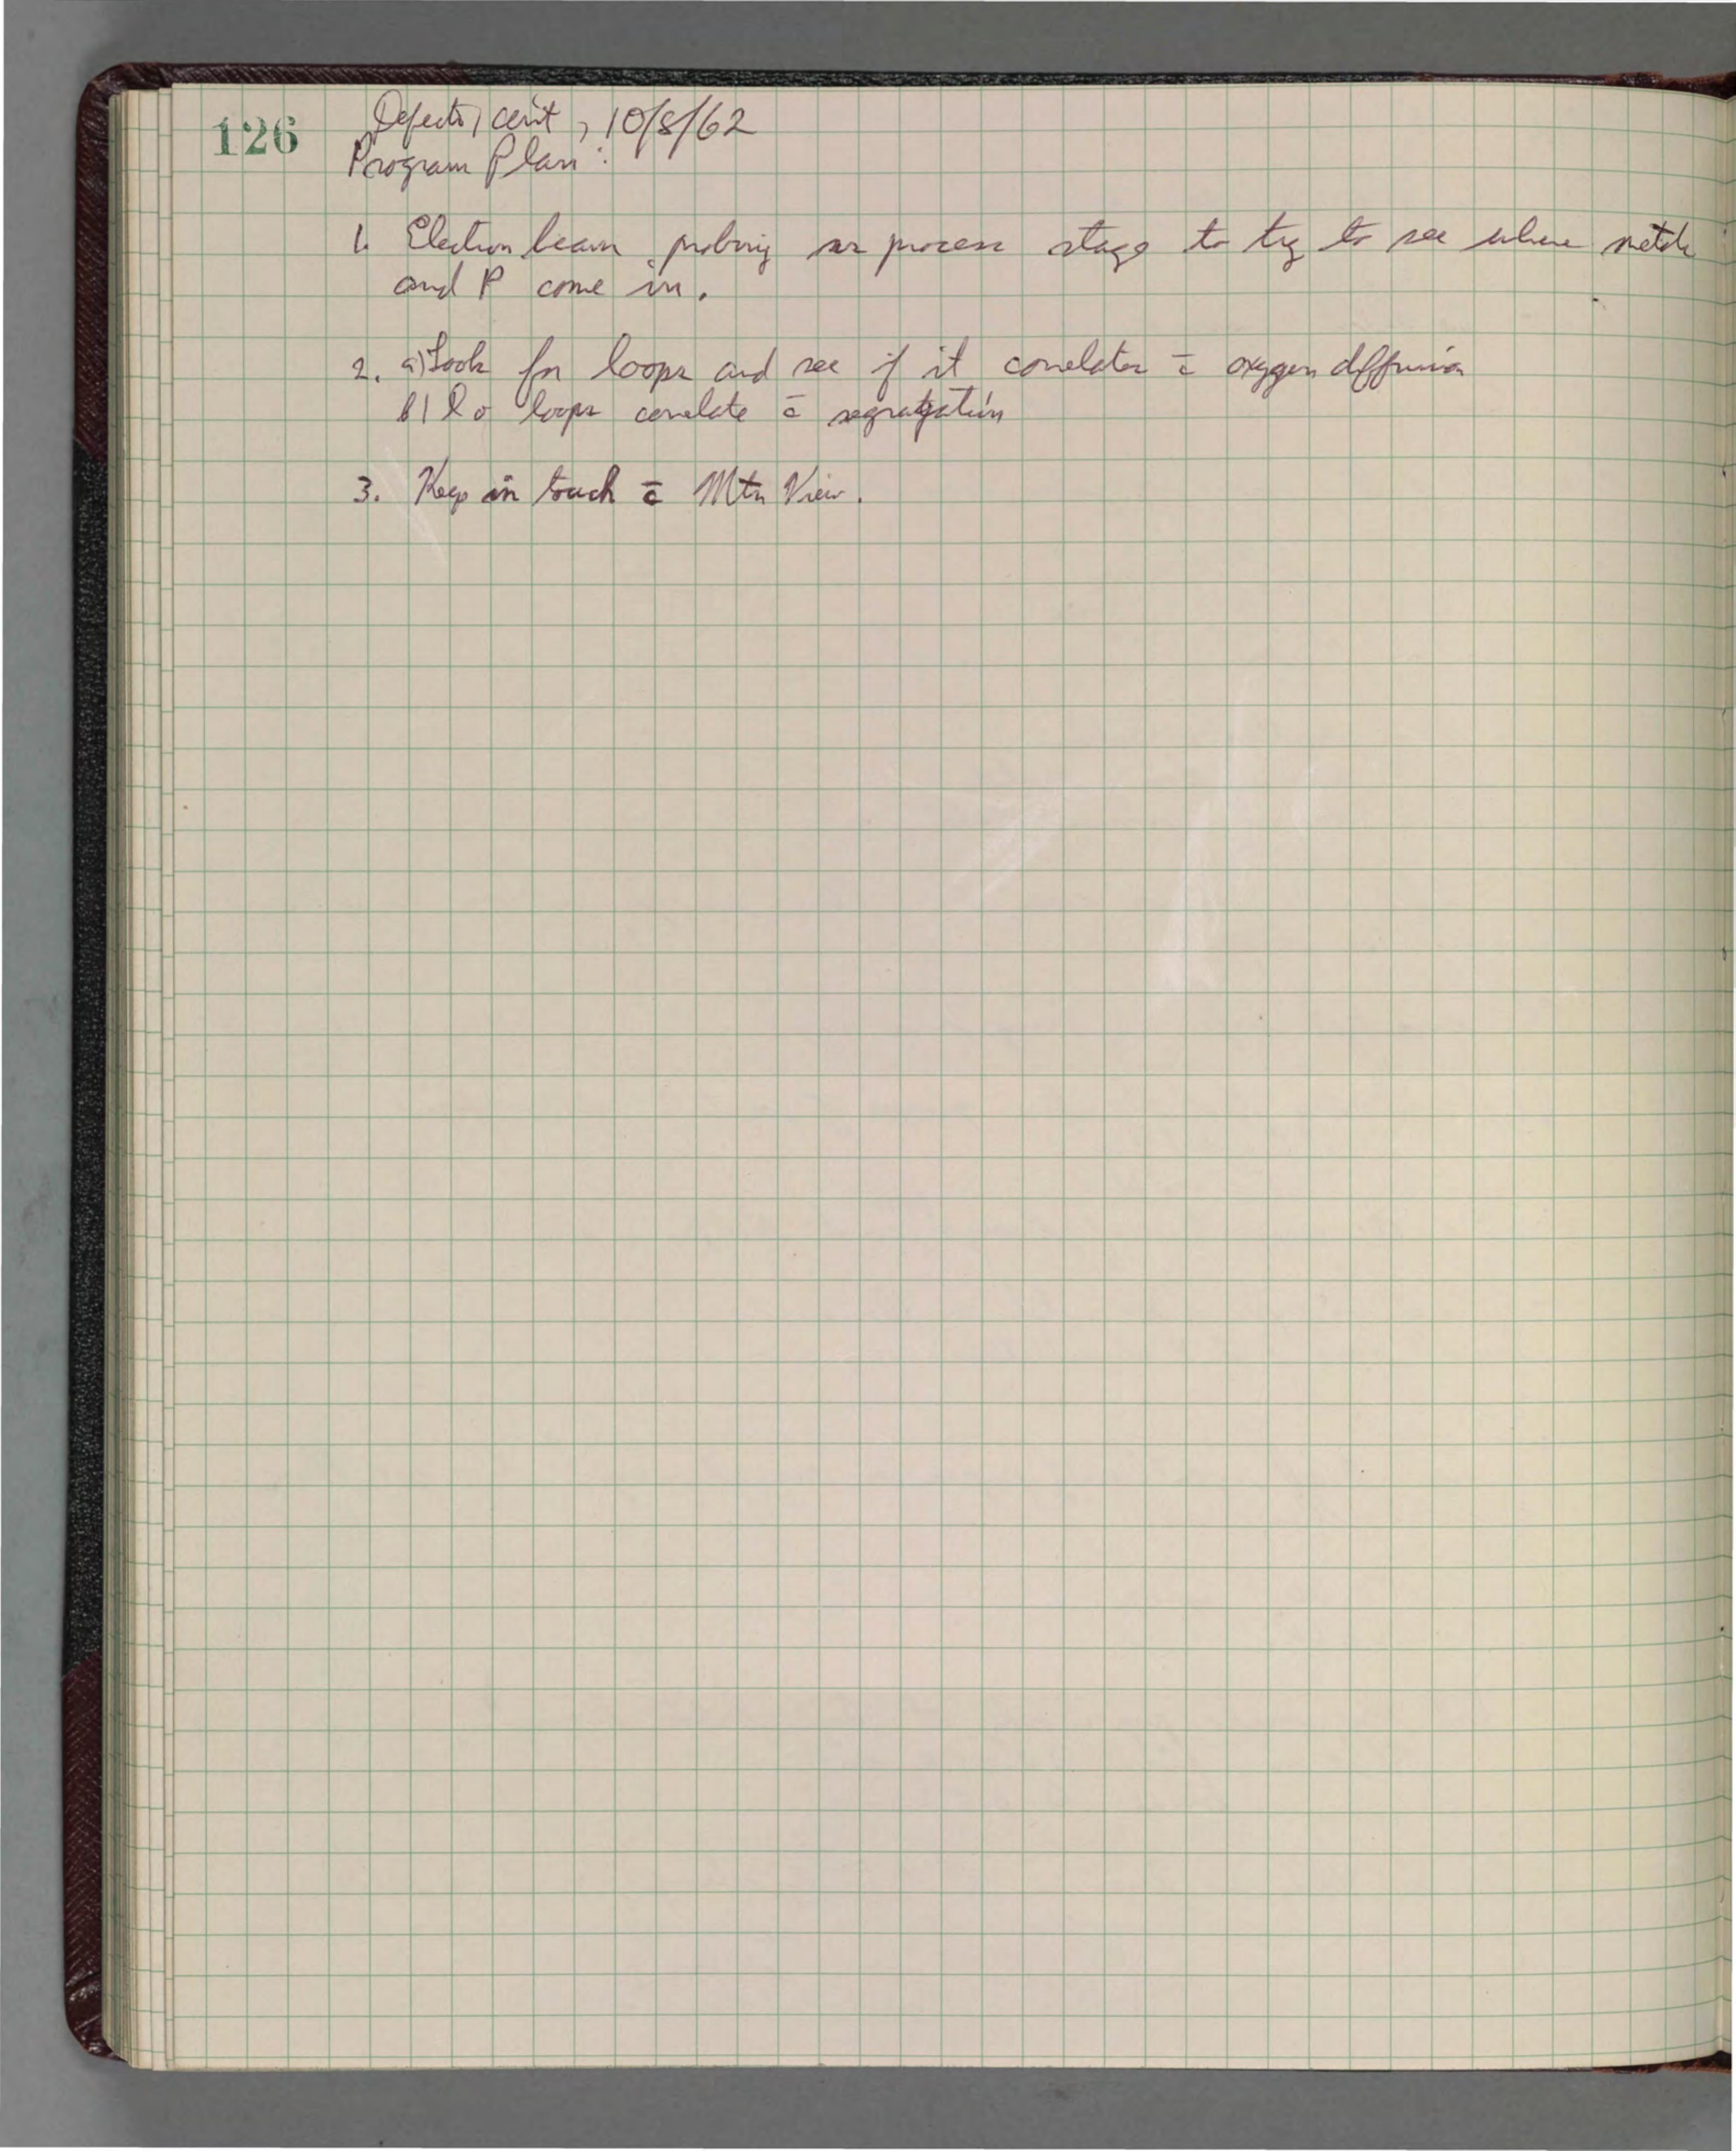 126
Defects, con't, 10/8/62
Program Plan:
1. Electron beam probing vs process stage to try to see where metals
and P come in.
2. a) Look for loops and see if it correlates c̄ oxygen diffusion
b) Do loops correlate c̄ segregation
3. Keep in touch c̄ Mtn View.